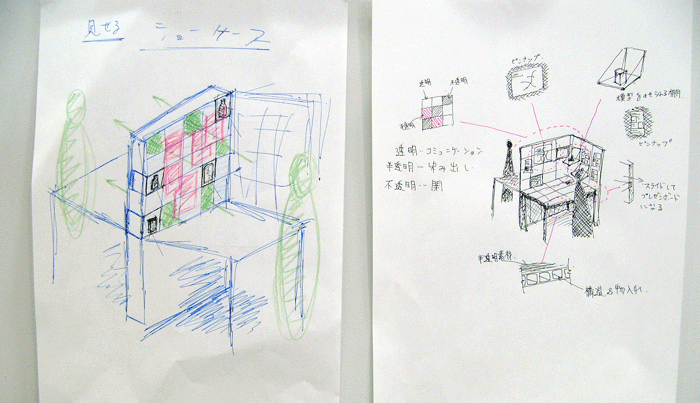 見せる ショーケース
ピンナップ
透明 不透明
透明・コミュニケーション
半透明ー染み出し
不透明・・閉
模型をのせられる棚
ピンナップ
スライドして
プレゼンボード
になる
半透明素材
構造&物入れ